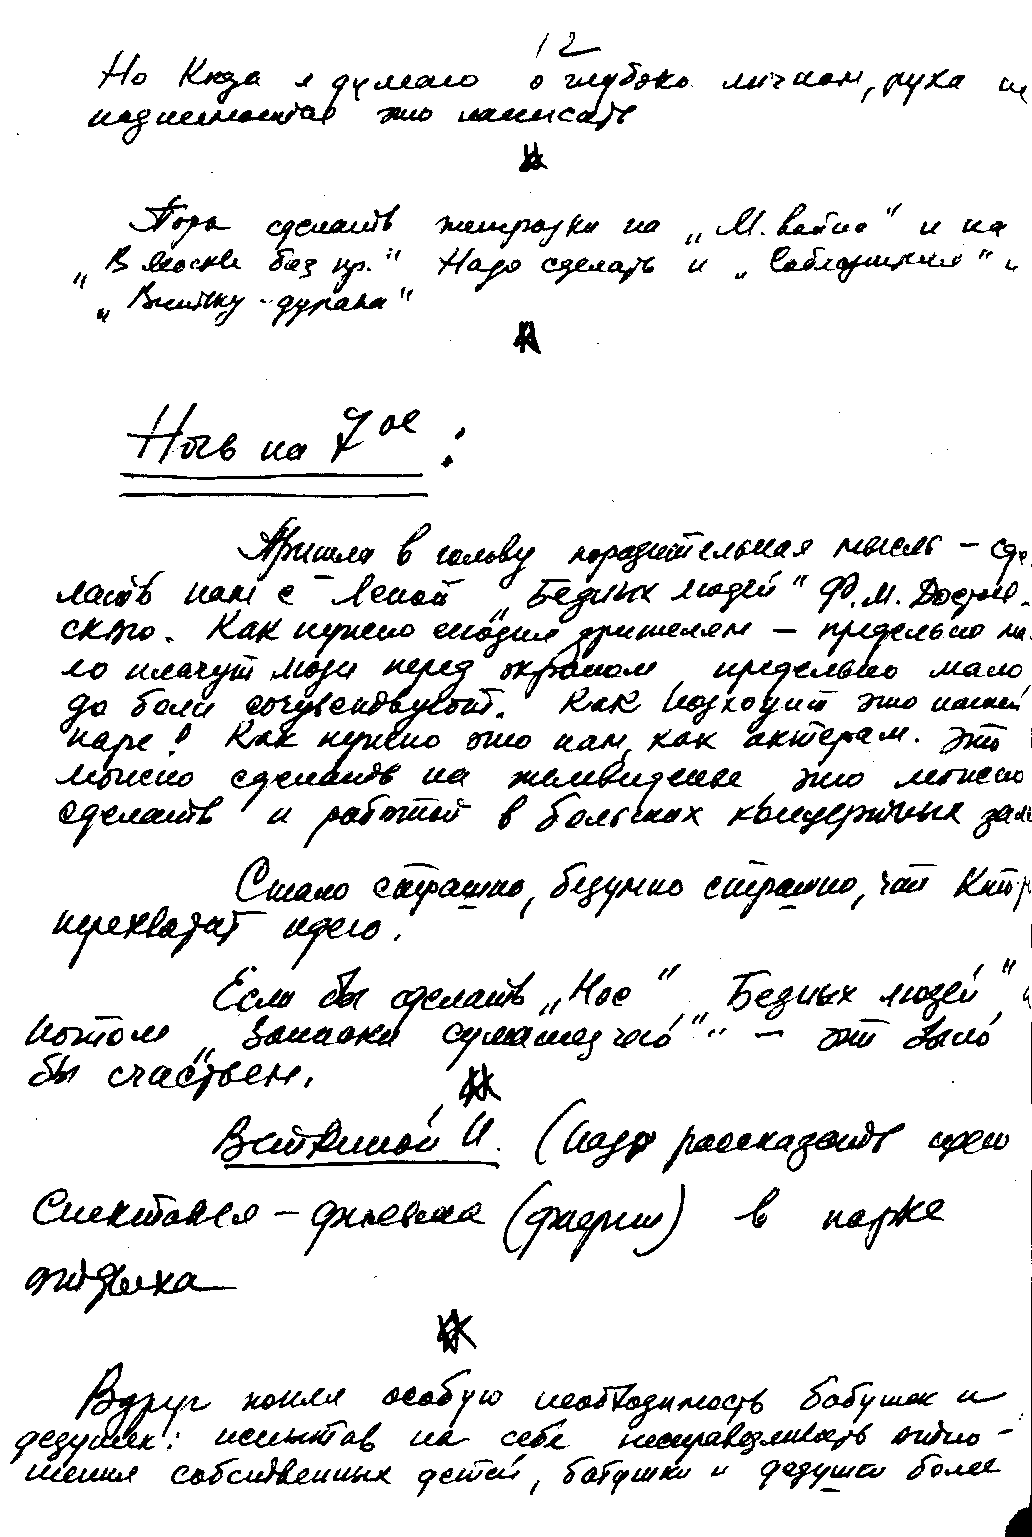 12
Но когда я думаю о глубоко личном, рука не
поднимается это написать
Пора сделать тетрадки на „М.
„В Москве без пр." Надо сделать и „Соблазнителя" и
„Ваньку-дурака"
Ночь на 7ое:
Пришла в голову поразительная мысль – сде
лать нам с Леной „Бедных людей" Ф.М. Достоев-
ского. Как нужно сегодня зрителям – предельно ма-
ло плачут люди перед экраном, предельно мало
до боли сочувствуют. Как подходит это нашей
паре! Как нужно это нам, как актерам. Это
можно сделать на телевидении, это можно
сделать и работой в больших концертных зал
Стало страшно, безумно страшно, что кто
перехватит идею.
Если бы сделать „Нос", „Бедных людей", и
потом „Записки сумасшедшего" – это было
бы счастьем.
И. (надо рассказать идею
Спектакля – фильма (феерии) в парке
отдыха
Вдруг понял особую необходимость бабушек и
дедушек: испытав на себе несправедливость отно-
шения собственных детей, бабушки и дедушки более